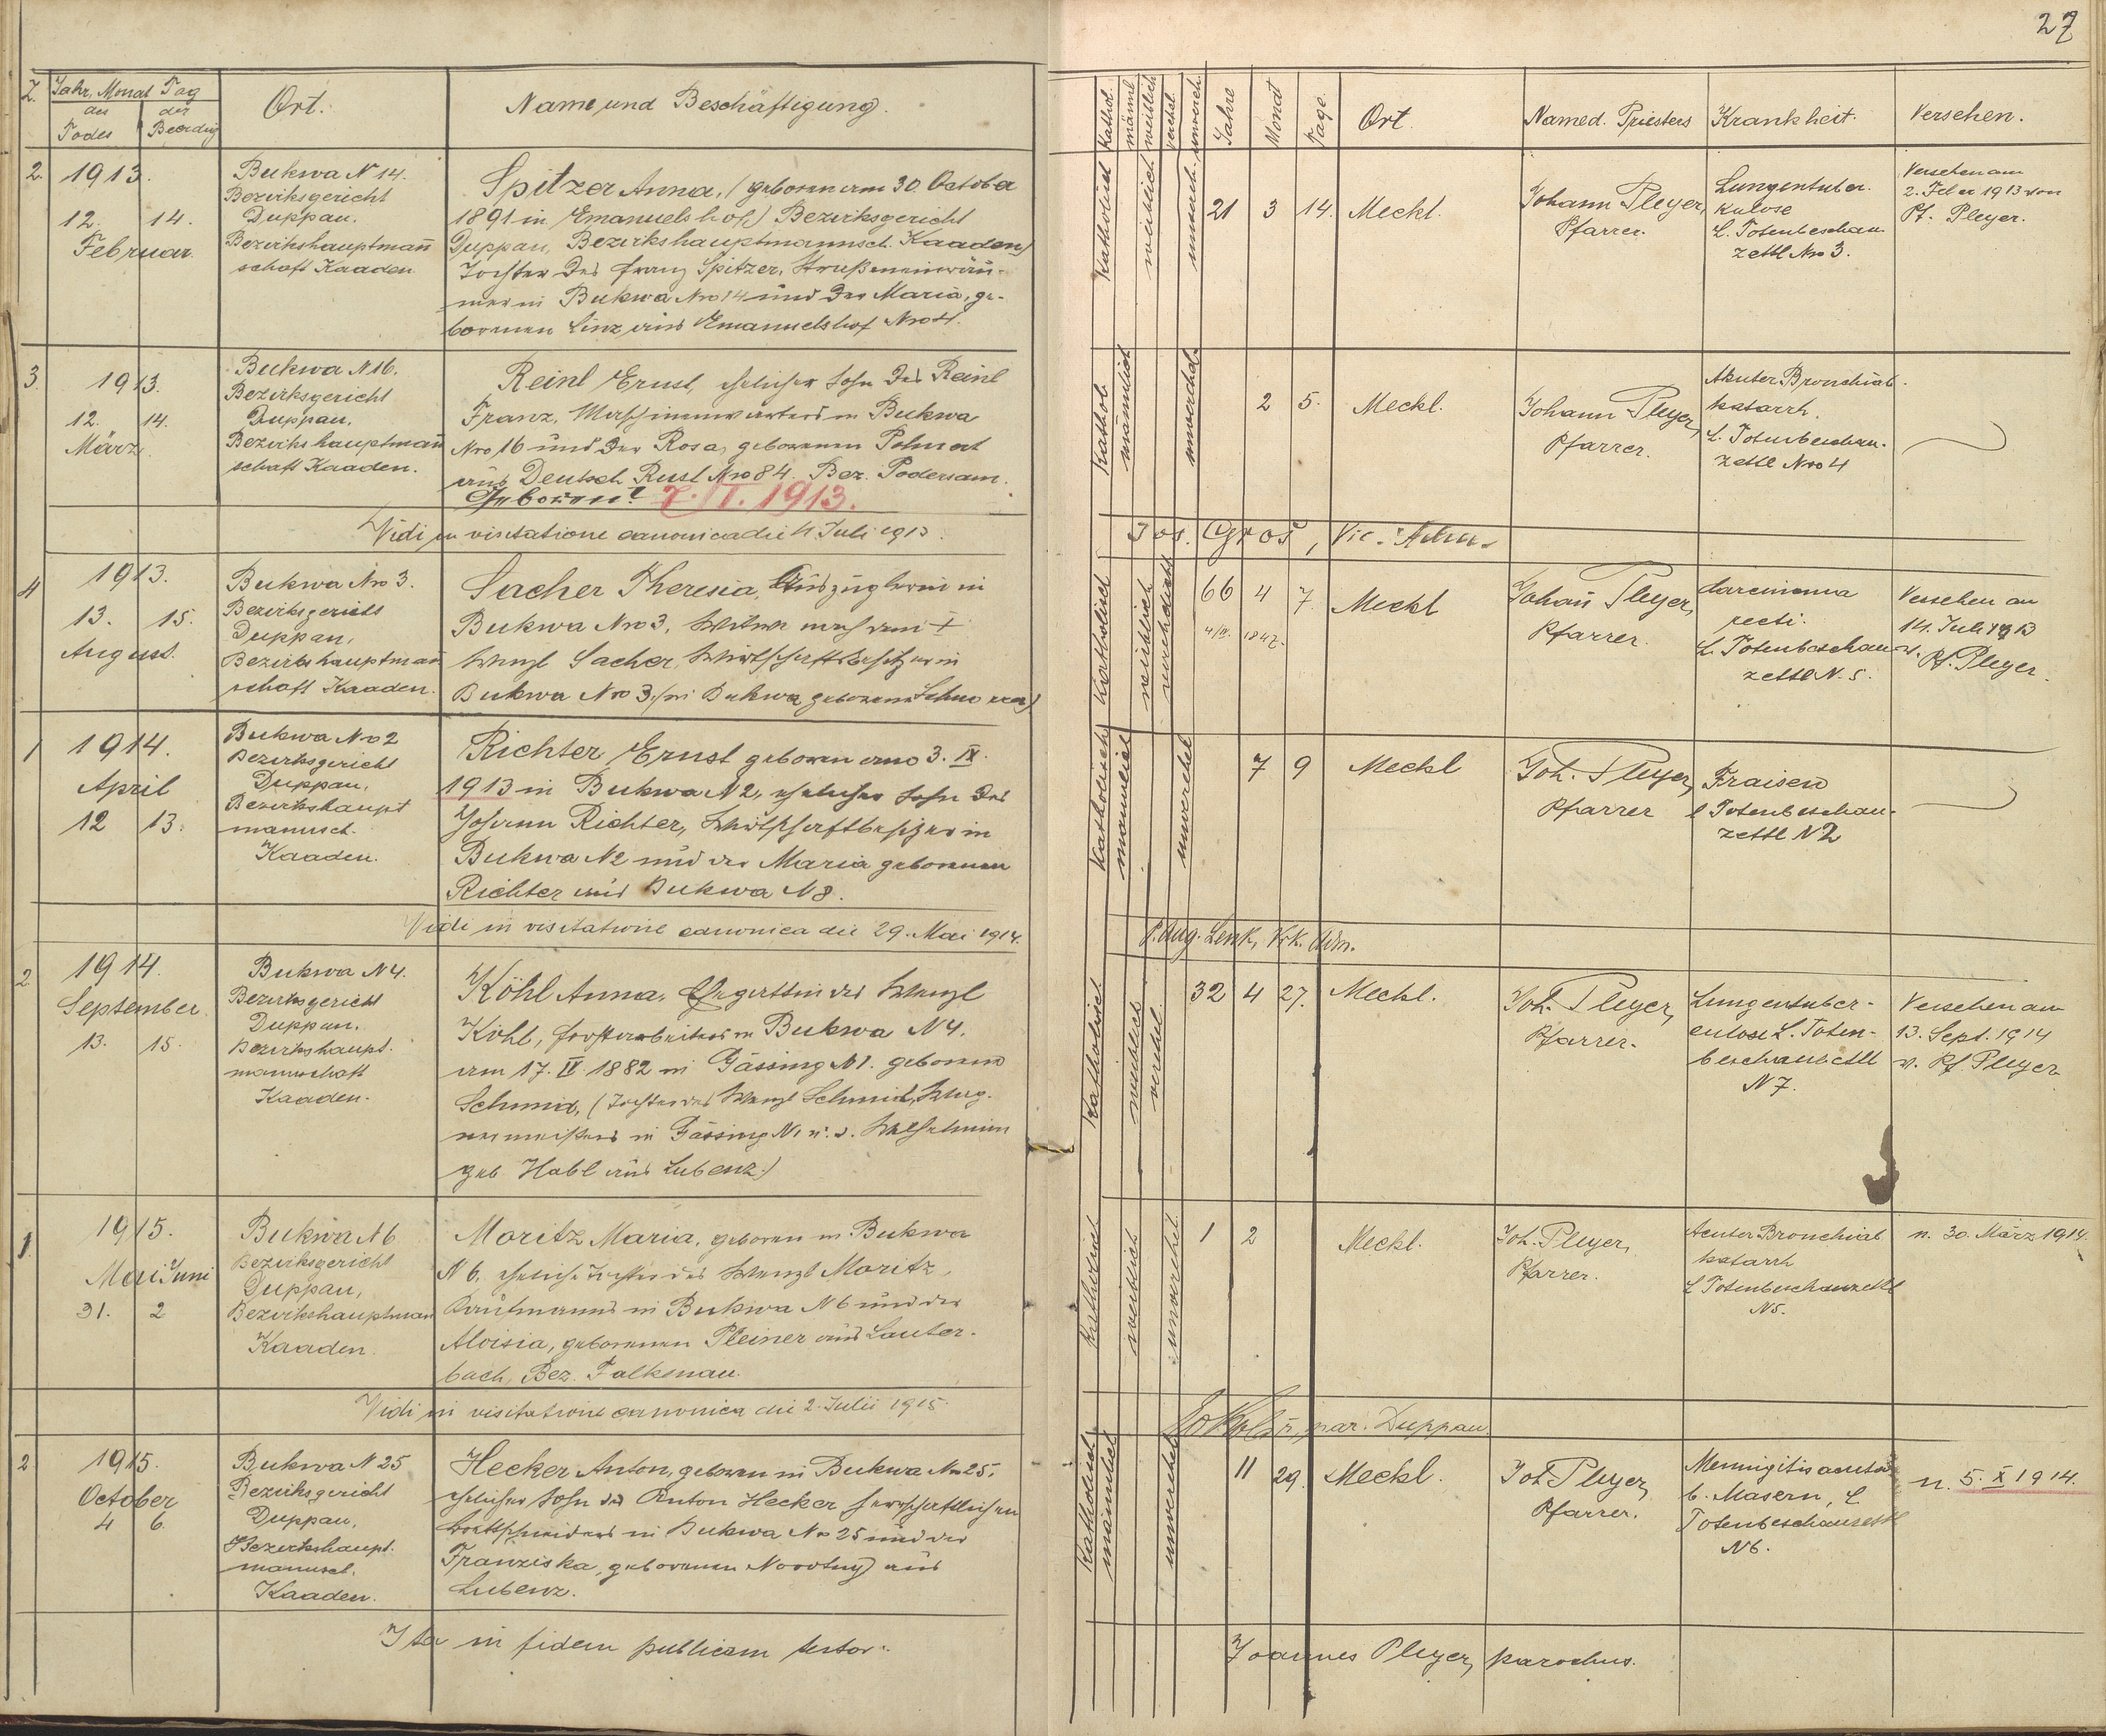 27
Z. Jahr, Monat Tag
des Todes
der Beerdig
Ort.
Name und Beschäftigung.
kathol.
männl
weiblich
verehel.
unvereh.
Jahre
Monat
Tage.
Ort.
Name d. Priesters
Krankheit.
Versehen.
2. 1913.
12. 14.
Februar.
Bukwa N 14.
Bezirksgericht
Duppau.
Bezirkshauptmann
schaft Kaaden
Spitzer Anna, (geboren am 30. October
1891 in Emanuelshof,) Bezirksgericht
Duppau, Bezirkshauptmannsch. Kaaden)
Tochter des Franz Spitzer, Straßeneinräu-
mer in Bukwa Nro 14 und der Maria, ge-
borenen Linz aus Emanuelshof Nro 4.
Katholisch
weiblich
unvereh.
21 3 14.
Meckl.
Johann Pleyer,
Pfarrer.
Lungentuber.
kulose
L. Totenbeschau
zettl Nro 3.
Versehen am
2. Feber 1913 von
Pf. Pleyer.
3. 1913.
12. 14.
März.
Bukwa N 16.
Bezirksgericht
Duppau,
Bezirkshauptmann
schaft Kaaden.
Reinl Ernst, ehelicher Sohn des Reinl
Franz, Maschinenwärters in Bukwa
Nro 16 und der Rosa, geborenen
aus Deutsch Rust Nro 84. Bez. Podersam.
Geboren: 7. I. 1913.
Kathol.
männlich
unverehel.
2 5.
Meckl.
Johann Pleyer,
Pfarrer.
Akuter Bronchial-
katarrh.
L. Totenbeschau-
zettl Nro 4
Vidi in visitatione canonica die 4 Juli 1913.
Jos. Groš, Vic.
4 1913.
13. 15.
August.
Bukwa Nro 3.
Bezirksgericht
Duppau,
Bezirkshauptmann
schaft Kaaden.
Sacher Theresia, Auszüglerin in
Bukwa Nro 3, Witwe nach dem +
Wenzl Sacher, Wirtschaftsbesitzer in
Bukwa Nro 3, (in Bukwa geborene
Katholisch
weiblich
66 4 7.
1847.
Meckl
Johañ Pleyer,
Pfarrer.
Carcinoma
recti.
L. Totenbeschau
zettl N. 5.
Versehen am
14. Juli 1913
v. Pf. Pleyer.
1 1914.
April
12 13.
Bukwa Nro 2
Bezirksgericht
Duppau,
Bezirkshaupt
mannsch.
Kaaden.
Richter Ernst geboren am 3. IX.
1913 in Bukwa N 2, ehelicher Sohn des
Johann Richter, Wirtschaftbesitzers in
Bukwa N 2 und der Maria geborenen
Richter aus Bukwa N 8.
Katholisch
männlich
unverehel
7 9
Meckl
Joh. Pleyer,
Pfarrer
Fraisen
l Totenbeschau-
zettl N 2
Vidi in visitatione canonica die 29. Mai 1914.
P. Aug. Lenk, Vik. Adm.
2 1914.
September.
13. 15.
Bukwa N 4.
Bezirksgericht
Duppau.
Bezirkshaupt-
mannschaft
Kaaden.
Köhl Anna, Ehegattin des Wenzl
Köhl, Forstarbeiters in Bukwa N 4.
am 17. IV. 1882 in Gässing N 1. geborene
Schmid, (Tochter des Wenzl Schmid, Wag-
nermeisters in Gässing N 1 u. d. Wilhelmine
geb Habl aus Lubenz.)
Katholisch
weiblich
verehel.
32 4 27.
Meckl.
Joh. Pleyer,
Pfarrer.
Lungentuber-
culose L. Toten-
beschauzettl
N 7.
Versehen am
13. Sept. 1914
v. Pf. Pleyer
1. 1915.
Mai Juni
31. 2
Bukwa N 6
Bezirksgericht
Duppau,
Bezirkshauptman
Kaaden.
Moritz Maria, geboren in Bukwa
N 6, eheliche Tochter des Wenzl Moritz,
Kaufmanns in Bukwa N 6 und der
Aloisia, geborenen Pleiner aus Lauter-
bach, Bez. Falkenau.
Katholisch
weiblich
unverehel.
1 2
Meckl.
Joh. Pleyer,
Pfarrer.
Acuter Bronchial
katarrh
L Totenbeschauzettl
N 5.
n. 30. März 1914.
Vidi in visitatione canonica die 2. Julii 1915.
par. Duppau.
2 1915.
October
4 6.
Bukwa N 25
Bezirksgericht
Duppau,
Bezirkshaupt.
mannsch.
Kaaden.
Hecker Anton, geboren in Bukwa Nro 25,
ehelicher Sohn des Anton Hecker herrschaftlichen
Brettschneiders in Bukwa Nro 25 und der
Franziska, geborenen Novotny) aus
Lubenz.
Katholisch
männlich
unverehel
11 29.
Meckl.
Joh Pleyer,
Pfarrer.
Menigitis acuta
b. Masern, L
Totenbeschauzettl
N 6.
n. 5. X 1914.
Ita in fidem publicam testor.
Joannes Pleyer, parochus.